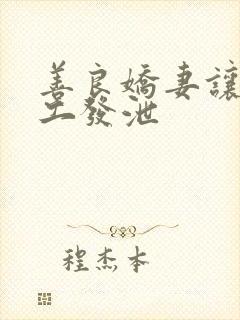 善良嬌妻讓
工發泄
程杰本